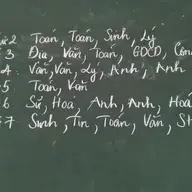 2 Toán, Toán, Sinh, Lý
3 Địa, Văn, Toán, GDCD, Côn
4 Văn, Văn, Lý, Anh, Anh
5 Toán, Văn
6 Sử, Hoá, Anh, Anh, Hoá
7 Sinh, Tin, Toán, Văn, SH